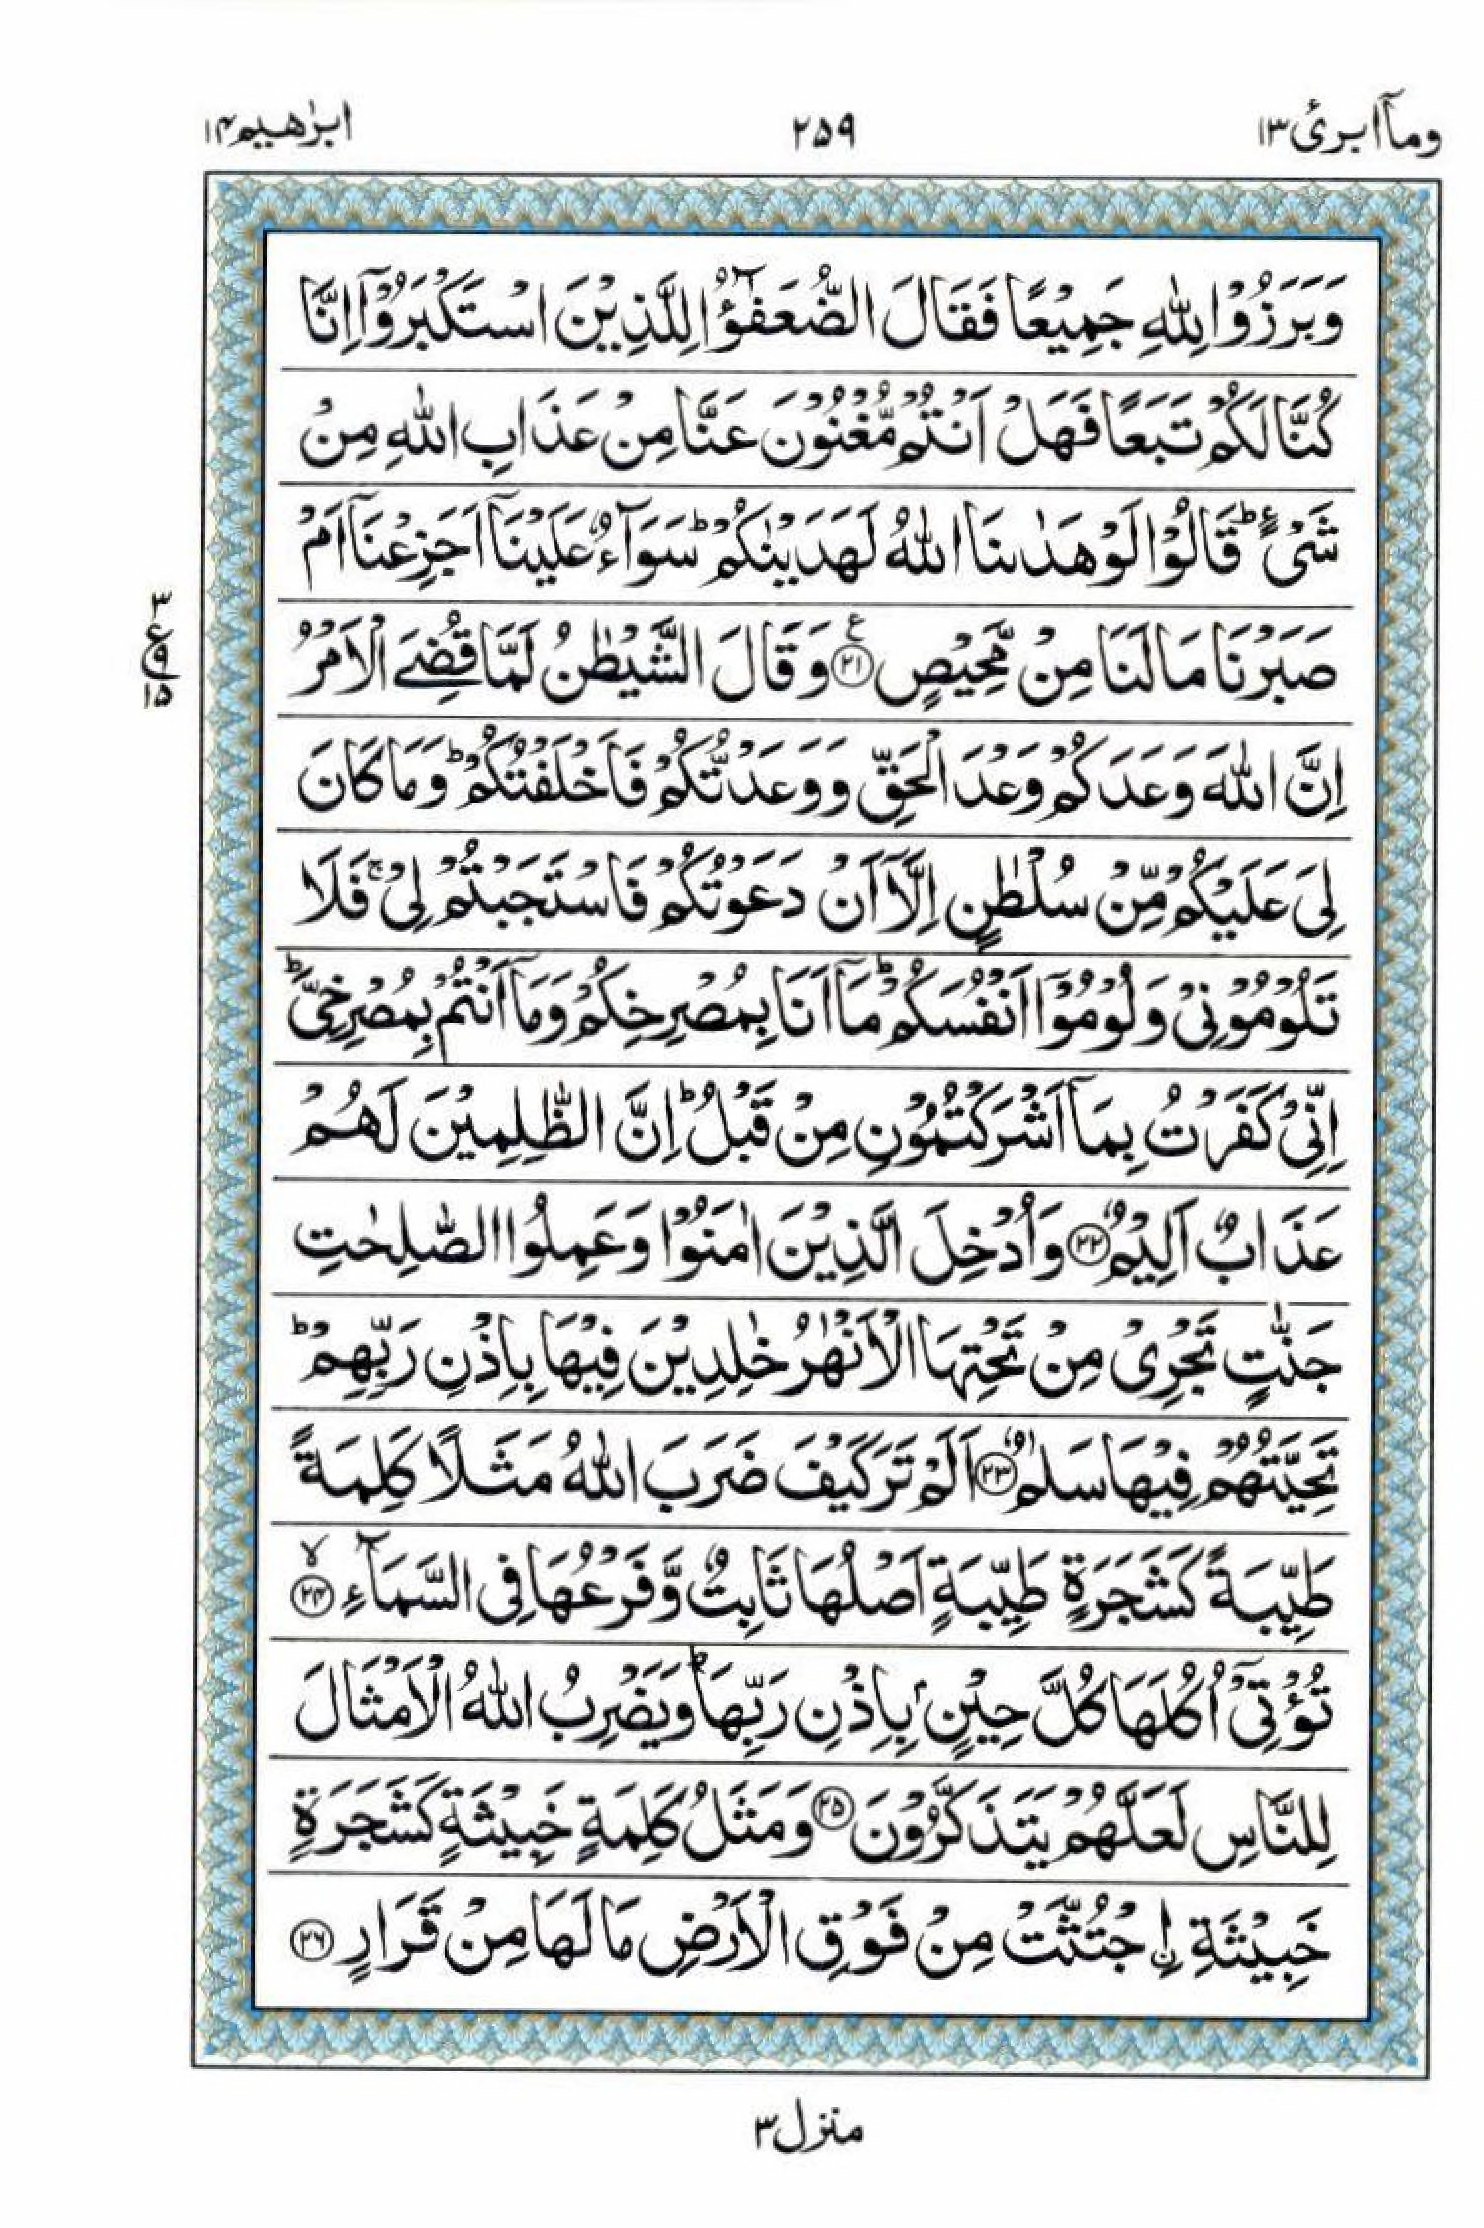 ومآ ابرئ ۱۳ ۲۵۹ ابرٰهیم ۱۴
وَبَرَزُوْا لِلّٰهِ جَمِيْعًا فَقَالَ الضُّعَفٰٓؤُا لِلَّذِيْنَ اسْتَكْبَرُوْٓا اِنَّا
كُنَّا لَكُمْ تَبَعًا فَهَلْ اَنْتُمْ مُّغْنُوْنَ عَنَّا مِنْ عَذَابِ اللّٰهِ مِنْ
شَیْءٍ ؕ قَالُوْا لَوْ هَدٰىنَا اللّٰهُ لَهَدَيْنٰكُمْ ؕ سَوَآءٌ عَلَيْنَآ اَجَزِعْنَآ اَمْ
صَبَرْنَا مَا لَنَا مِنْ مَّحِيْصٍ ﴿۲۱﴾ ع وَقَالَ الشَّيْطٰنُ لَمَّا قُضِیَ الْاَمْرُ
۳
ع ۹
۱۵
اِنَّ اللّٰهَ وَعَدَكُمْ وَعْدَ الْحَقِّ وَوَعَدْتُّكُمْ فَاَخْلَفْتُكُمْ ؕ وَمَا كَانَ
لِیَ عَلَيْكُمْ مِّنْ سُلْطٰنٍ اِلَّآ اَنْ دَعَوْتُكُمْ فَاسْتَجَبْتُمْ لِیْ ۚ فَلَا
تَلُوْمُوْنِیْ وَلُوْمُوْٓا اَنْفُسَكُمْ ؕ مَآ اَنَا بِمُصْرِخِكُمْ وَمَآ اَنْتُمْ بِمُصْرِخِیَّ ؕ
اِنِّیْ كَفَرْتُ بِمَآ اَشْرَكْتُمُوْنِ مِنْ قَبْلُ ؕ اِنَّ الظّٰلِمِيْنَ لَهُمْ
عَذَابٌ اَلِيْمٌ ﴿۲۲﴾ وَاُدْخِلَ الَّذِيْنَ اٰمَنُوْا وَعَمِلُوا الصّٰلِحٰتِ
جَنّٰتٍ تَجْرِیْ مِنْ تَحْتِهَا الْاَنْهٰرُ خٰلِدِيْنَ فِيْهَا بِاِذْنِ رَبِّهِمْ ؕ
تَحِيَّتُهُمْ فِيْهَا سَلٰمٌ ﴿۲۳﴾ اَلَمْ تَرَ كَيْفَ ضَرَبَ اللّٰهُ مَثَلًا كَلِمَةً
طَيِّبَةً كَشَجَرَةٍ طَيِّبَةٍ اَصْلُهَا ثَابِتٌ وَّفَرْعُهَا فِی السَّمَآءِ ﴿۲۴﴾ ۙ
تُؤْتِیْٓ اُكُلَهَا كُلَّ حِيْنٍۢ بِاِذْنِ رَبِّهَا ؕ وَيَضْرِبُ اللّٰهُ الْاَمْثَالَ
لِلنَّاسِ لَعَلَّهُمْ يَتَذَكَّرُوْنَ ﴿۲۵﴾ وَمَثَلُ كَلِمَةٍ خَبِيْثَةٍ كَشَجَرَةٍ
خَبِيْثَةِ ِۨاجْتُثَّتْ مِنْ فَوْقِ الْاَرْضِ مَا لَهَا مِنْ قَرَارٍ ﴿۲۶﴾
منزل ۳